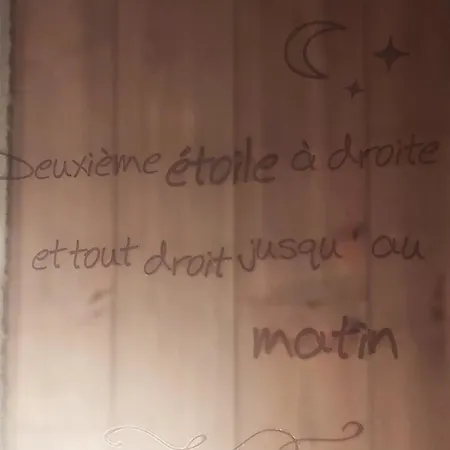 Deuxième étoile à droite
et tout droit jusqu'au
matin